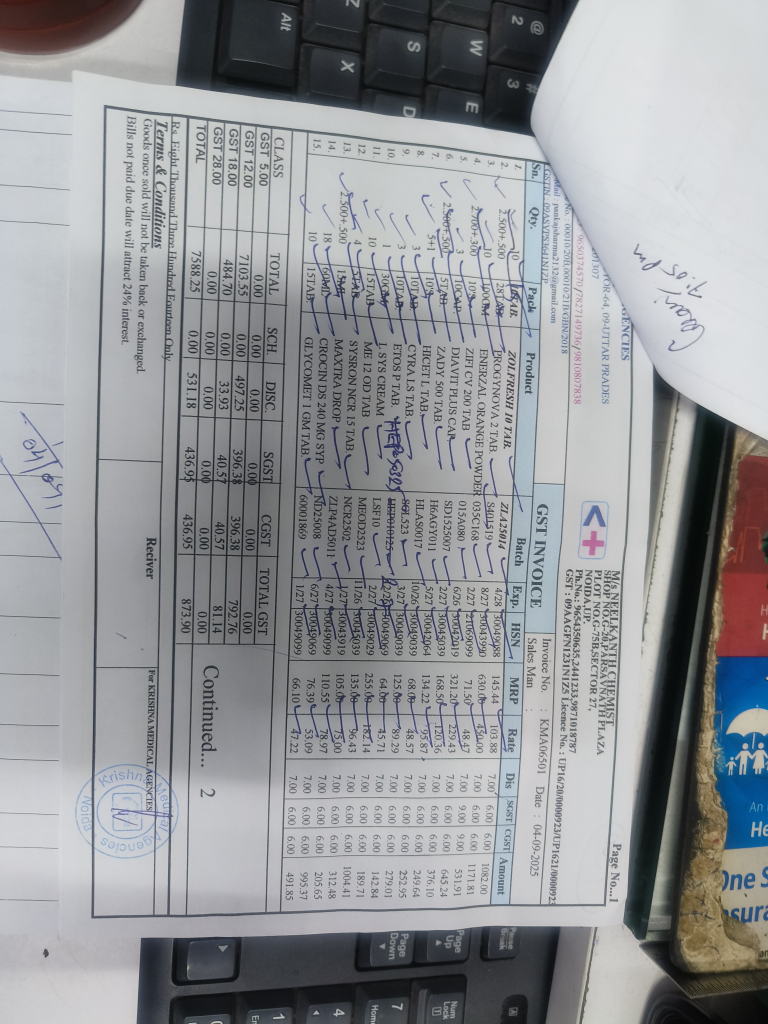 Page No...1
AGENCIES
TOR-64, 09-UTTAR PRADES
201307
9650374570/7827149736/9810807838
No. : 00010/20B,00010/21B/GBN/2018
Mail : pankajpharma2132@gmail.com
GSTIN : 09ASVPS3641N1ZP
Goari
7.05 pm
M/s NEELKANTH CHEMIST
SHOP NO.G-20,PARSAVNATH PLAZA
PLOT NO.G-75B,SECTOR 27,
NOIDA,UP.
Ph.No.: 9654350635,2441233,9871018787
GST : 09AAGFN1231N1Z5 Licence No. : UP16/20/0000923/UP1621/0000923
GST INVOICE
Invoice No. : KMA06501 Date : 04-09-2025
Sales Man :
Sn. Qty. Pack Product Batch Exp. HSN MRP Rate Dis SGST CGST Amount
1. 10 TAB. ZOLFRESH 10 TAB. ZLA25014 4/28 30049088 145.44 103.88 7.00 6.00 6.00 1082.00
2. 2.500+.500 28TAB PROGYNOVA 2 TAB S401519 8/27 30043990 630.00 450.00 7.00 6.00 6.00 1171.81
3. 10 100GM ENERZAL ORANGE POWDER 035C168 2/27 21069099 71.50 48.47 7.00 9.00 9.00 531.91
4. 2.700+.300 10'S ZIFI CV 200 TAB 015A080 6/26 30042019 321.20 229.43 7.00 6.00 6.00 645.24
5. 3 10CAP DIAVIT PLUS CAP SD1525007 2/27 30045039 168.50 120.36 7.00 6.00 6.00 376.10
6. 2.500+.500 5TAB ZADY 500 TAB H6AGY011 5/27 30042064 134.22 95.87 7.00 6.00 6.00 249.64
7. 5+1 10'S HICET L TAB. HLAS0017 10/26 30049039 68.00 48.57 7.00 6.00 6.00 252.95
8. 3 10TAB CYRA LS TAB SGL523 3/27 30049039 125.00 89.29 7.00 6.00 6.00 279.01
9. 3 10TAB ETOS P TAB HEP010125 30049069 64.00 45.71 7.00 6.00 6.00 142.84
10. 1 30GM L SYS CREAM LSF10 2/27 30049029 255.00 182.14 7.00 6.00 6.00 189.71
11. 10 15TAB ME 12 OD TAB MEOD2523 11/26 30045039 135.00 96.43 7.00 6.00 6.00 1004.41
12. 4 SYSRON NCR 15 TAB NCR2502 1/27 30043919 105.00 75.00 7.00 6.00 6.00 312.48
13. 2.500+.500 15ML MAXTRA DROP ZLPAAD5011 4/27 30049099 110.55 78.97 7.00 6.00 6.00 205.65
14. 18 60ML CROCIN DS 240 MG SYP ND25008 6/27 30049069 76.39 53.09 7.00 6.00 6.00 995.37
15. 10 15TAB GLYCOMET 1 GM TAB 60001869 1/27 30049099 66.10 47.22 7.00 6.00 6.00 491.85
CLASS TOTAL SCH. DISC. SGST CGST TOTAL GST
GST 5.00 0.00 0.00 0.00 0.00 0.00 0.00
GST 12.00 7103.55 0.00 497.25 396.38 396.38 792.76
GST 18.00 484.70 0.00 33.93 40.57 40.57 81.14
GST 28.00 0.00 0.00 0.00 0.00 0.00 0.00
TOTAL 7588.25 0.00 531.18 436.95 436.95 873.90
Continued... 2
Rs. Eight Thousand Three Hundred Fourteen Only
Terms & Conditions
Goods once sold will not be taken back or exchanged.
Bills not paid due date will attract 24% interest.
Reciver
For KRISHNA MEDICAL AGENCIES
Krishna Medical Agencies
Noida
Alt
Z
X
S
D
W
E
@
2
#
3
Pause
Break
Page
Up
Page
Down
Num
Lock
7
Home
4
1
0
An
He
One S